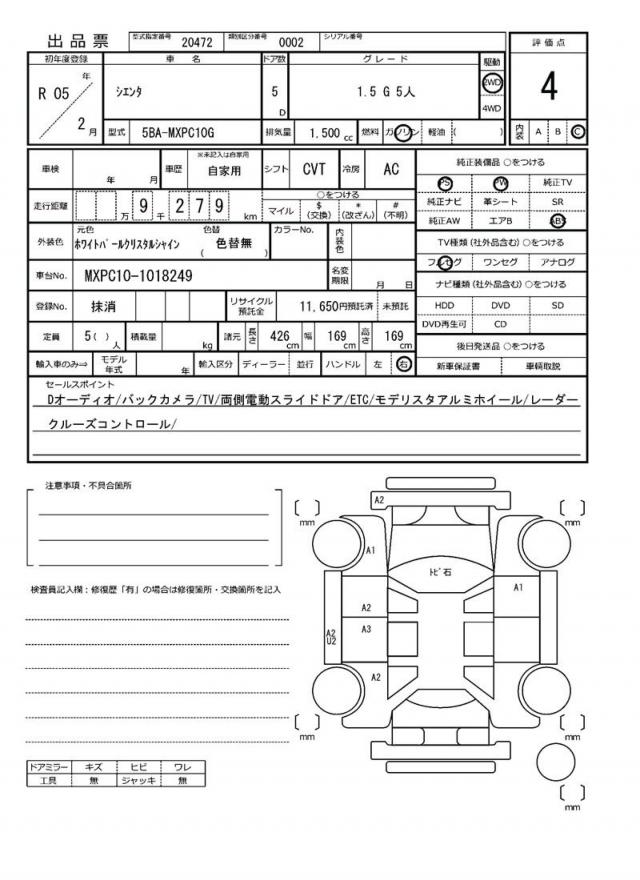 出品票 型式指定番号 20472 類別区分番号 0002 シリアル番号
初年度登録 車名 ドア数 グレード 駆動 評価点
R 05 年 2 月 シエンタ 5 D 1.5 G 5人 2WD 4WD 4
型式 5BA-MXPC10G 排気量 1.500 cc 燃料 ガソリン 軽油 ( ) 内装 A B C
車検 年 月 車歴 ※未記入は自家用 自家用 シフト CVT 冷房 AC
走行距離 万 9 千 2 7 9 km ○をつける マイル $ (交換) * (改ざん) # (不明)
外装色 元色 ホワイトパールクリスタルシャイン 色替 ( 色替無 ) カラーNo. 内装色
車台No. MXPC10-1018249 名変期限 月 日
登録No. 抹消 リサイクル預託金 11,650円預託済 未預託
定員 5( ) 人 積載量 kg 諸元 長さ 426 cm 幅 169 cm 高さ 169 cm
輸入車のみ⇒ モデル年式 年 輸入区分 ディーラー 並行 ハンドル 左 右
純正装備品 ○をつける
PS PW 純正TV
純正ナビ 革シート SR
純正AW エアB ABS
TV種類(社外品含む) ○をつける
フルセグ ワンセグ アナログ
ナビ種類(社外品含む) ○をつける
HDD DVD SD
DVD再生可 CD
後日発送品 ○をつける
新車保証書 車輌取説
セールスポイント
Dオーディオ/バックカメラ/TV/両側電動スライドドア/ETC/モデリスタアルミホイール/レーダー
クルーズコントロール/
注意事項・不具合箇所
検査員記入欄：修復歴「有」の場合は修復箇所・交換箇所を記入
ドアミラー キズ ヒビ ワレ
工具 無 ジャッキ 無
A2
[ ] mm
[ ] mm
A1
トビ石
A2
A1
A3
A2
U2
A2
[ ] mm
[ ] mm
[ ] mm